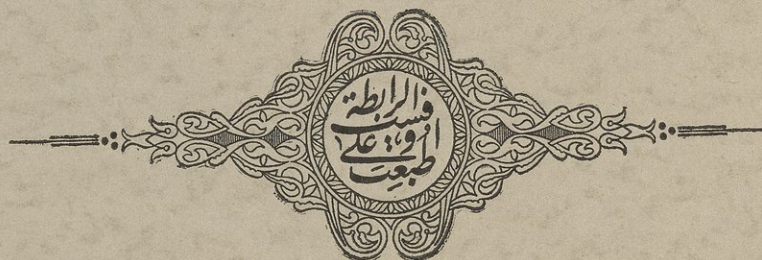 طبعت
على او
فست
الرابطة